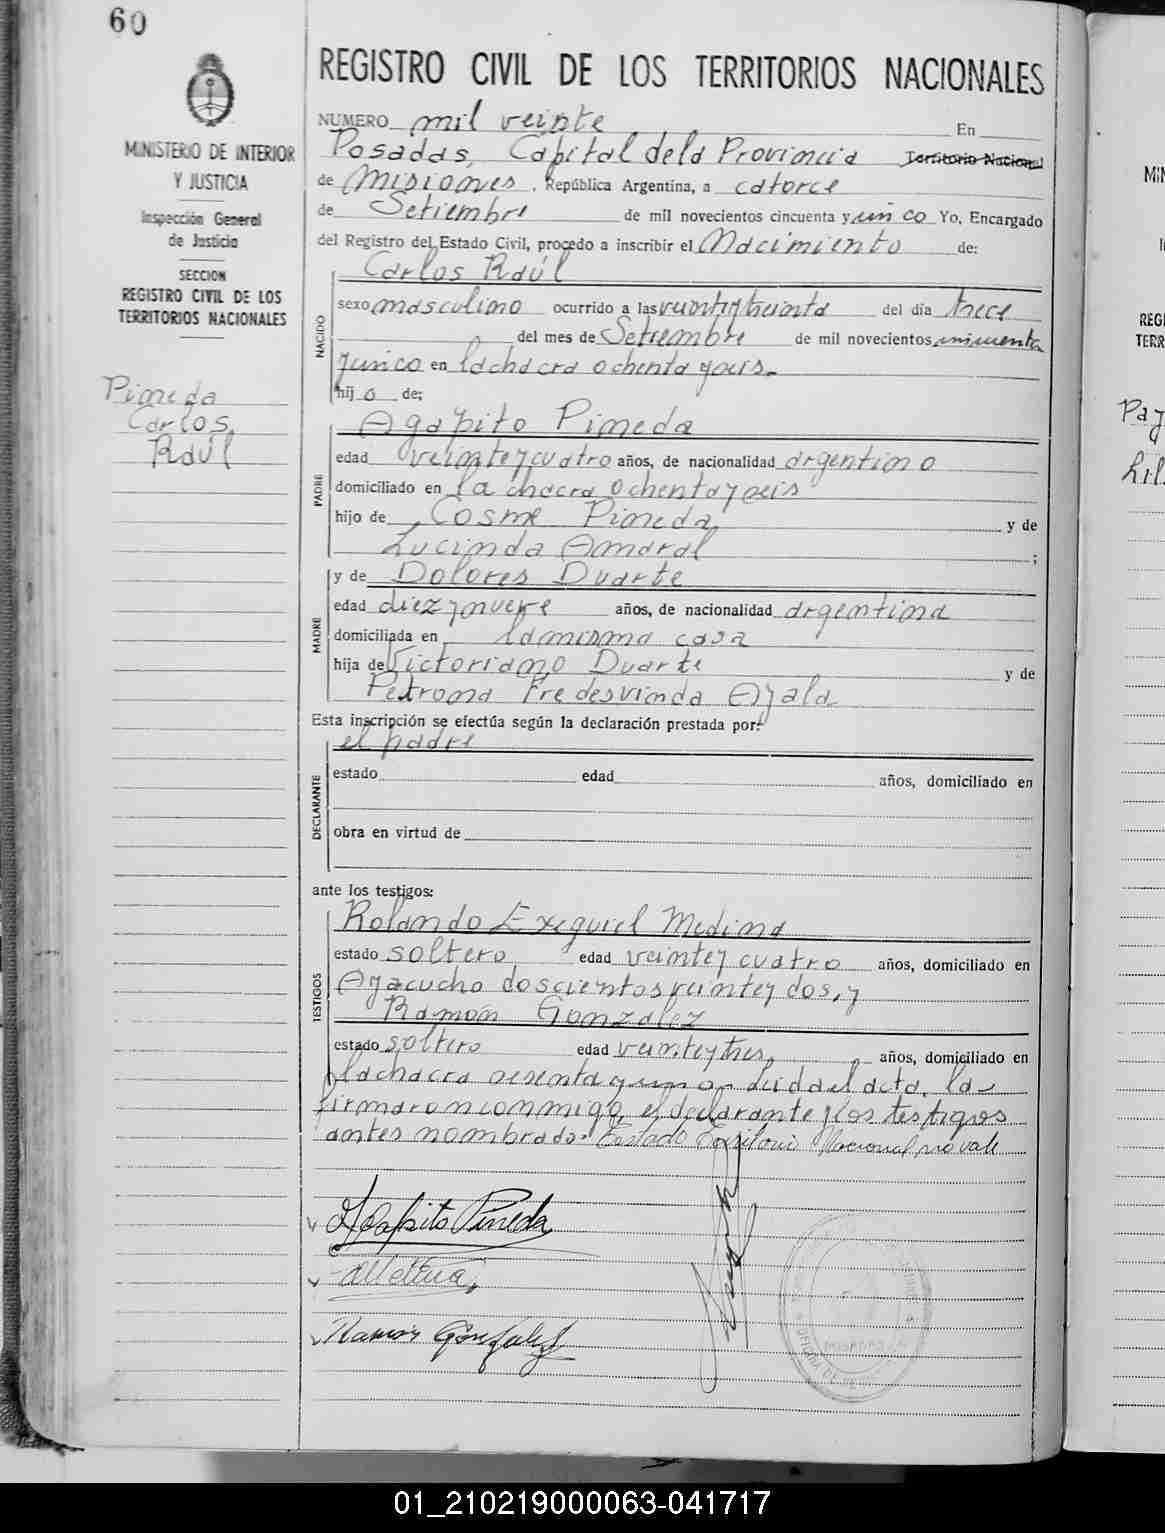 60
MINISTERIO DE INTERIOR
Y JUSTICIA
Inspección General
de Justicia
SECCION
REGISTRO CIVIL DE LOS
TERRITORIOS NACIONALES
Pineda
Carlos
Raúl
REGISTRO CIVIL DE LOS TERRITORIOS NACIONALES
NUMERO mil veinte En
Posadas, Capital dela Provincia Territorio Nacional
de Misiones, República Argentina, a catorce
de Setiembre de mil novecientos cincuenta y un co Yo, Encargado
del Registro del Estado Civil, procedo a inscribir el Nacimiento de:
Carlos Raúl
NACIDO
sexo masculino ocurrido a las del día trece
del mes de Setiembre de mil novecientos cincuenta
y cinco en la chacra ochenta y seis.
hij o de:
Agapito Pineda
PADRE
edad veinte y cuatro años, de nacionalidad argentino
domiciliado en la chacra ochenta y seis
hijo de Cosme Pineda y de
Lucinda Amaral ;
MADRE
y de Dolores Duarte
edad diez y nueve años, de nacionalidad argentina
domiciliada en la misma casa
hija de Victoriano Duarte y de
Petrona Fredesvinda Ayala
Esta inscripción se efectúa según la declaración prestada por:
el padre
DECLARANTE
estado edad años, domiciliado en
obra en virtud de
ante los testigos:
TESTIGOS
Rolando Exequiel Medina
estado soltero edad veinte y cuatro años, domiciliado en
Ayacucho doscientos veinte y dos, y
Ramón Gonzalez
estado soltero edad veinte y tres, años, domiciliado en
la chacra sesenta y uno - Leida el acta, la
firmaron conmigo, el declarante y los testigos
antes nombrado. Nacional no vale
Agapito Pineda
Ramón González
MiN
REGI
TERR
Pay
Lil
01_210219000063-041717